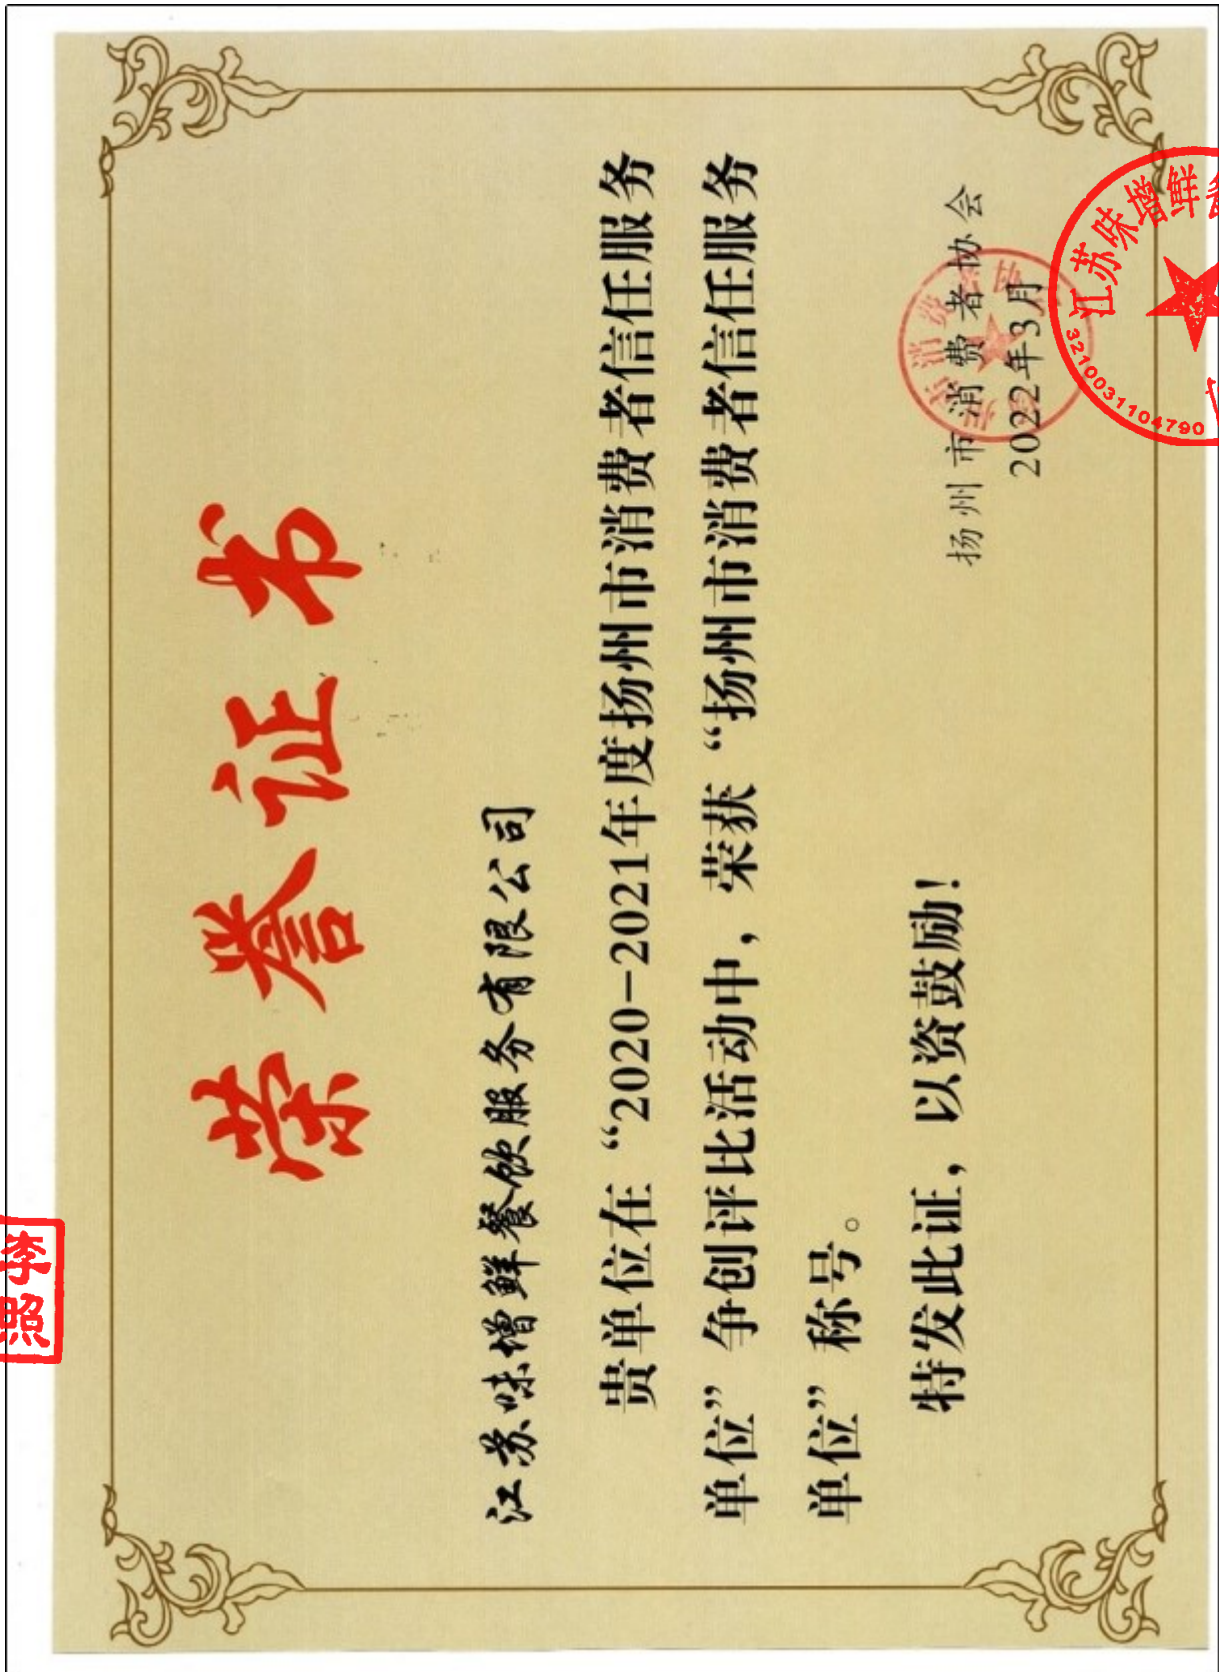 荣誉证书
江苏味增鲜餐饮服务有限公司
贵单位在“2020-2021年度扬州市消费者信任服务
单位”争创评比活动中，荣获“扬州市消费者信任服务
单位”称号。
特发此证，以资鼓励！
扬州市消费者协会
2022年3月
江苏味增鲜
3210031104790
李照